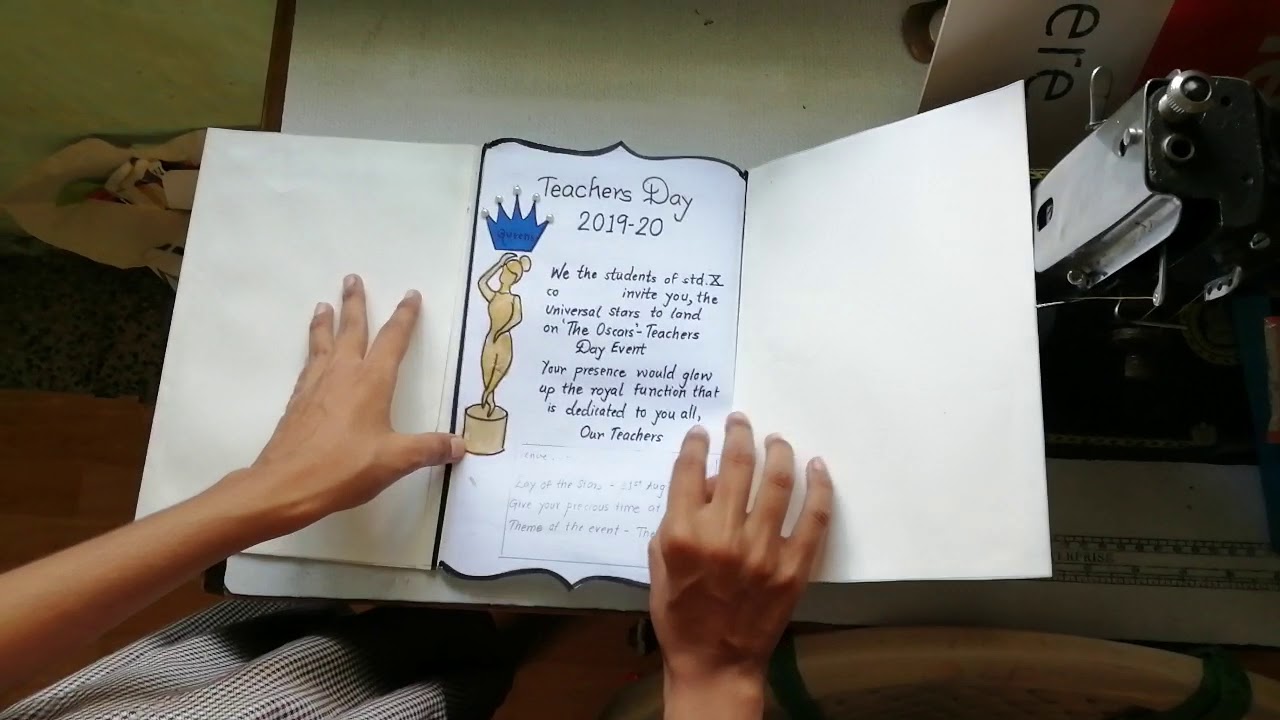 ere
Teachers Day
2019-20
Queens
We the students of std.X
co invite you, the
universal stars to land
on 'The Oscars'-Teachers
Day Event
Your presence would glow
up the royal function that
is dedicated to you all,
Our Teachers
enue...
Day of the Stars - 31st Aug
Give your precious time at
Theme of the event - The
ERPRISE